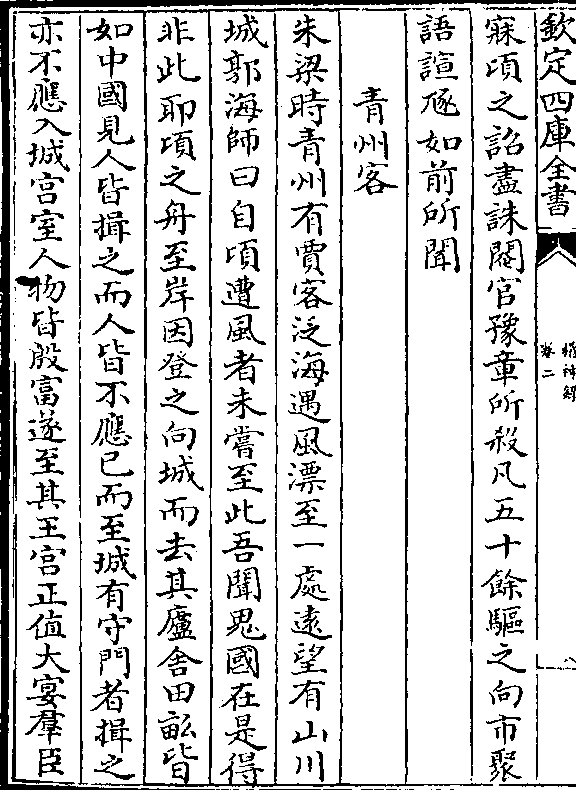 欽定四庫全書
稽神錄
卷二
寐頃之詔盡誅閹官豫章所殺凡五十餘驅之向市聚
語諠豗如前所聞
青州客
朱梁時青州有賈客泛海遇風漂至一處遠望有山川
城郭海師曰自頃遭風者未嘗至此吾聞鬼國在是得
非此耶頃之舟至岸因登之向城而去其廬舍田畝皆
如中國見人皆揖之而人皆不應已而至城有守門者揖之
亦不應入城宫室人物皆殷富遂至其王宫正值大宴羣臣